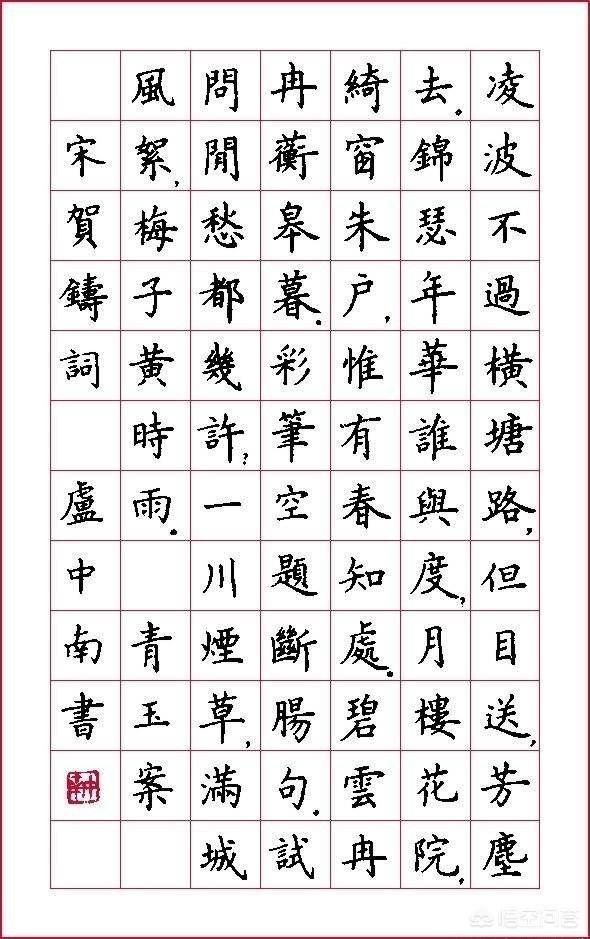 凌波不過橫塘路，但目送，芳塵
去。錦瑟年華誰與度，月樓花院，
綺窗朱户，惟有春知處。碧雲冉
冉蘅皋暮。彩筆空題斷腸句。試
問閒愁都幾許？一川煙草，滿城
風絮，梅子黃時雨。 青玉案
宋賀鑄詞 盧中南書
悟空问答